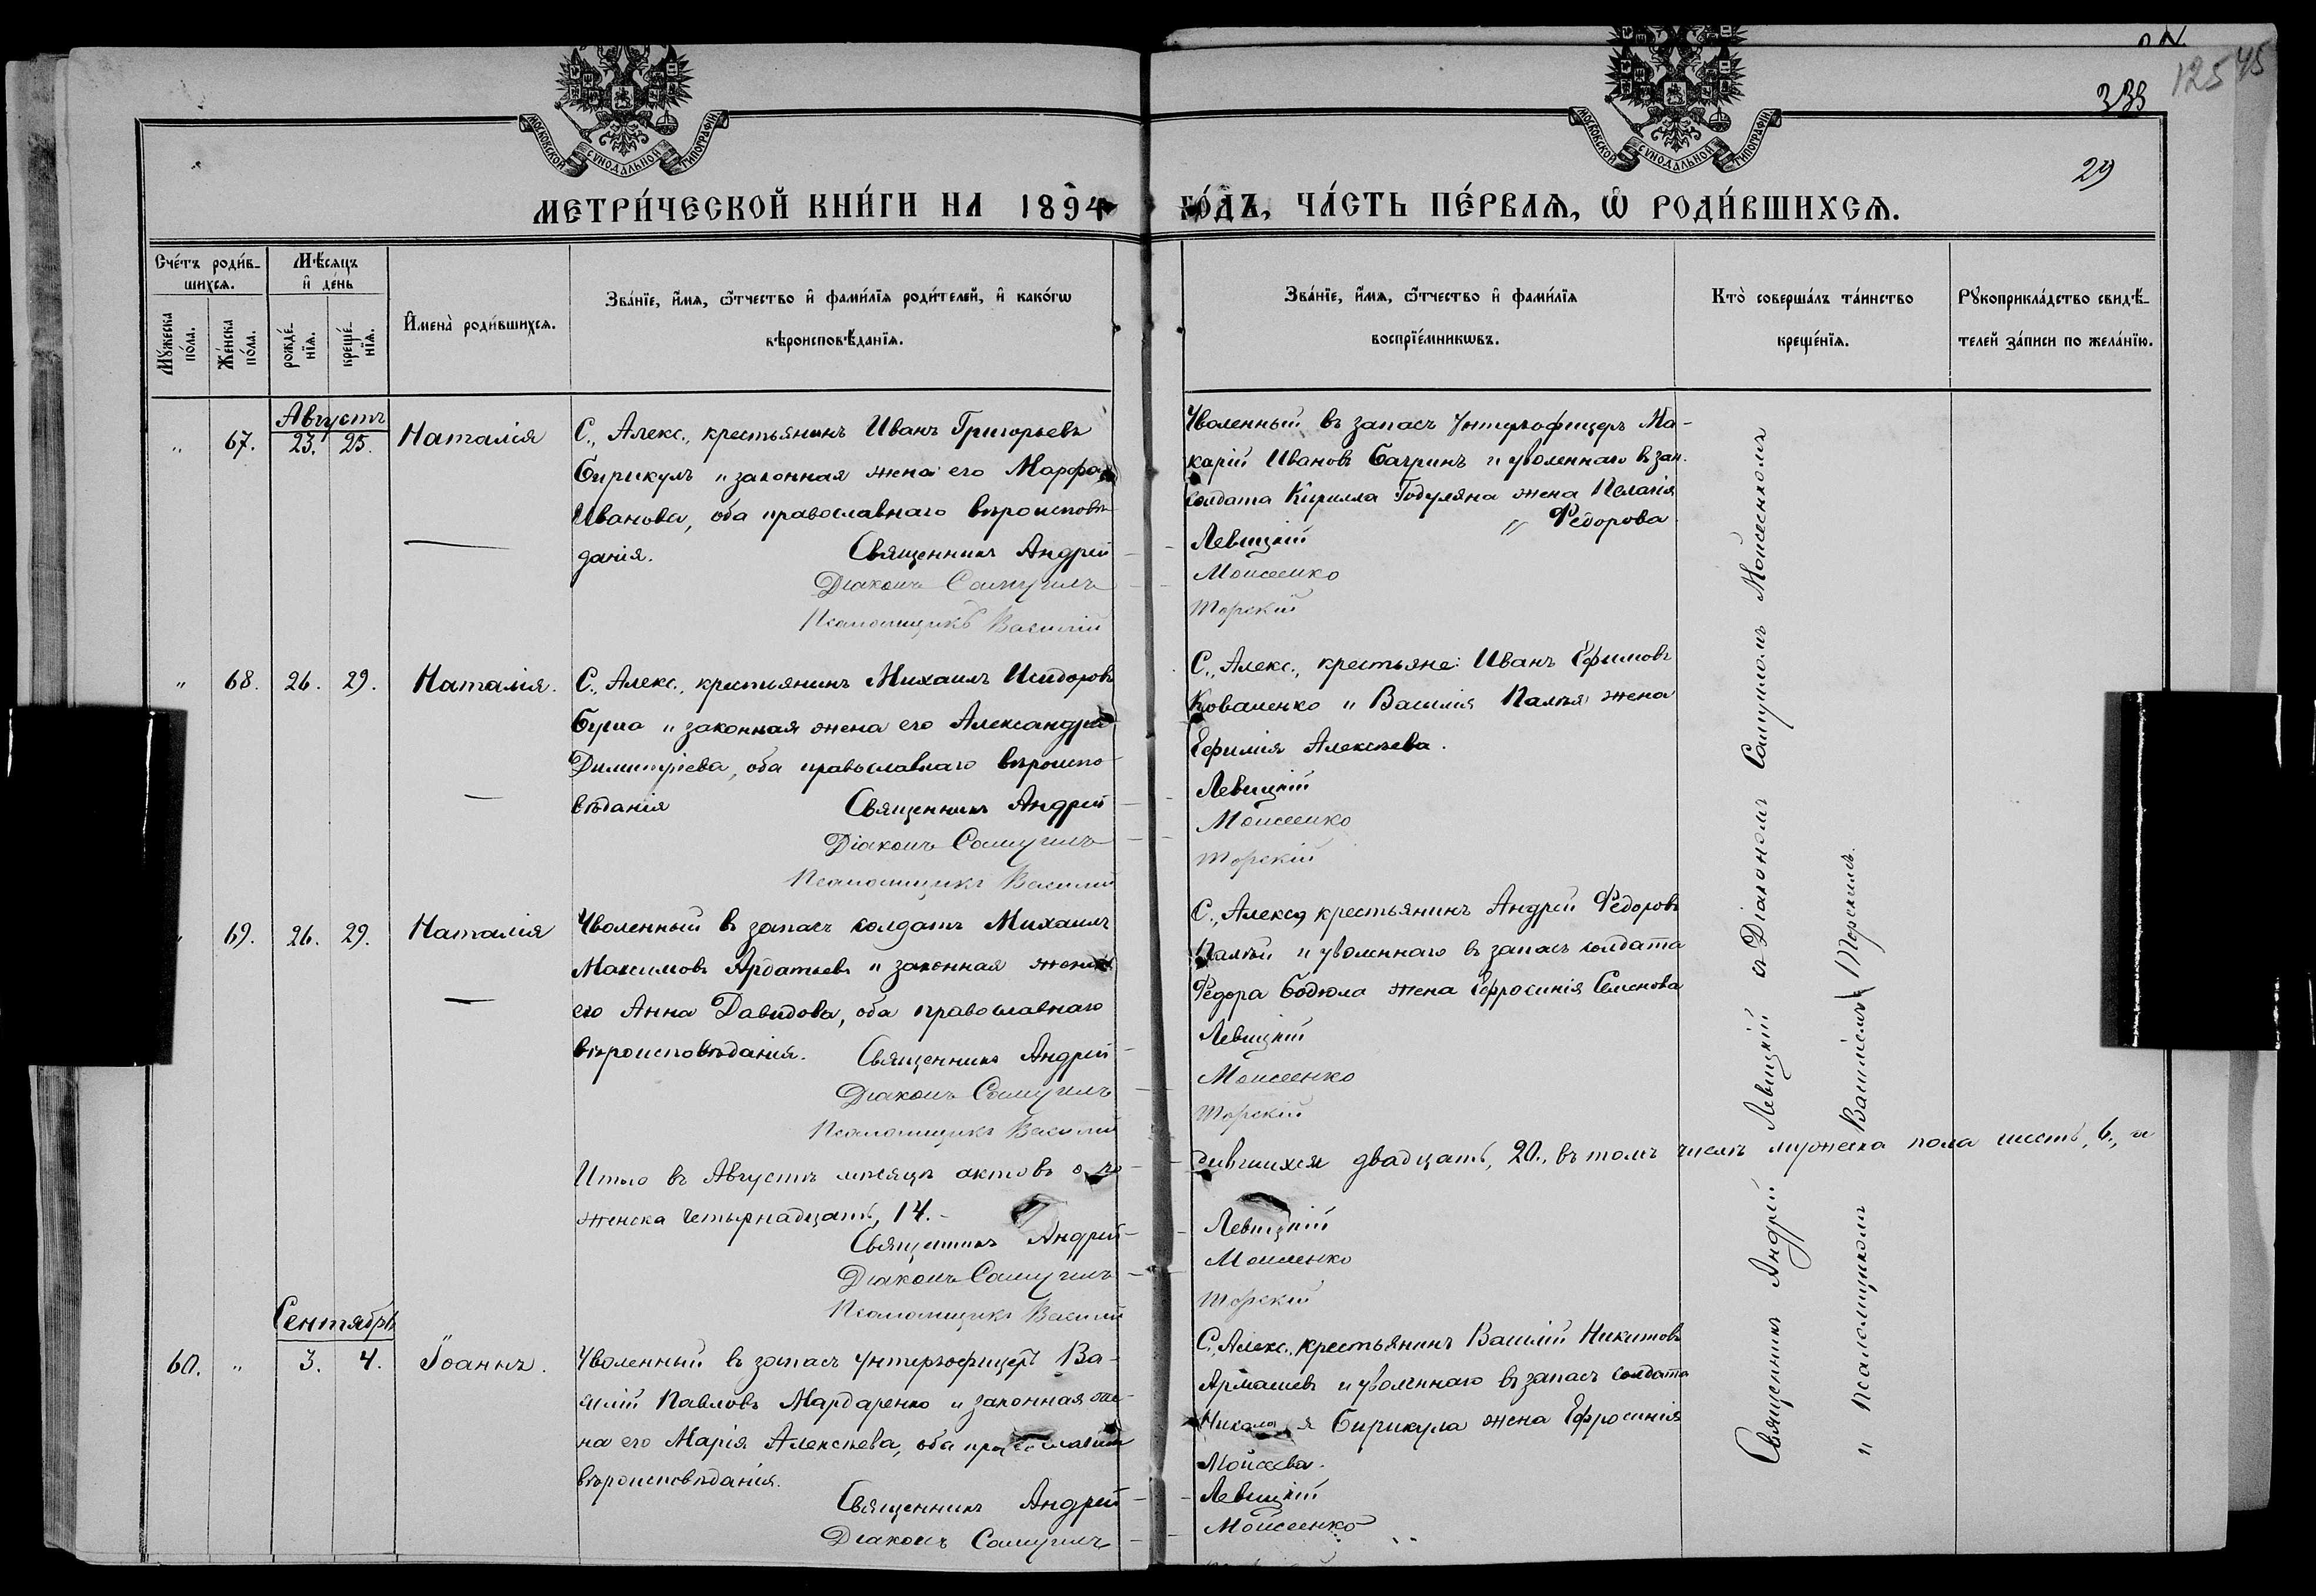 125 45
333
29
МОСКОВСКОЙ СѴНОДАЛЬНОЙ ТИПОГРАФІИ
МОСКОВСКОЙ СѴНОДАЛЬНОЙ ТИПОГРАФІИ
МЕТРИ́ЧЕСКОЙ КНИ́ГИ НА 1894
ГО́ДЪ, ЧА́СТЬ ПЕ́РВАѦ, Ѡ РОДИ́ВШИХСѦ.
Сче́тъ роди́в-
шихсѧ.
Мꙋ́жеска по́ла.
Же́нска по́ла.
Мѣ́сѧцъ
и҆ де́нь
рожде́-
нїѧ.
креще́-
нїѧ.
И҆мена̀ роди́вшихсѧ.
Зва́нїе, и҆́мѧ, ѻ҆́тчество и҆ фами́лїѧ роди́телей, и҆ како́гѡ
вѣроисповѣ́данїѧ.
Зва́нїе, и҆́мѧ, ѻ҆́тчество и҆ фами́лїѧ
воспрїе́мникѡвъ.
Кто̀ соверша́лъ та́инство
креще́нїѧ.
Рꙋкоприкла́дство свидѣ́-
телей за́писи по жела́нїю.
Августъ
" 67. 23. 25. Наталія
С., Алекс., крестьянинъ Иванъ Григорьевъ
Бирикулъ и законная жена его Марфа
Иванова, оба православнаго вѣроисповѣ-
данія. Священникъ Андрей
Діаконъ Самуилъ
Псаломщикъ Василій
Уволенный въ запасъ Унтерофицеръ Ма-
карій Ивановъ Багринъ и уволеннаго въ зап.
солдата Кирилла Годуляна жена Пелагія
" Федорова
Левицкій
Моисеенко
Торскій
" 68. 26. 29. Наталія.
С., Алекс., крестьянинъ Михаилъ Исидоровъ
Бурла и законная жена его Александра
Димитріева, оба православнаго вѣроиспо-
вѣданія Священникъ Андрей
Діаконъ Самуилъ
Псаломщикъ Василій
С., Алекс., крестьяне: Иванъ Ефимовъ
Коваленко и Василія Палъя жена
Ефимія Алексѣева.
Левицкій
Моисеенко
Торскій
" 69. 26. 29. Наталія
Уволенный въ запасъ солдатъ Михаилъ
Максимовъ Ардатьевъ и законная жена
его Анна Давидова, оба православнаго
вѣроисповѣданія. Священникъ Андрей
Діаконъ Самуилъ
Псаломщикъ Василій
С., Алекс, крестьянинъ Андрей Федоровъ
Палѣй и уволеннаго въ запасъ солдата
Федора Бодюла жена Ефросинія Семенова
Левицкій
Моисеенко
Торскій
Итого въ Августѣ мѣсяцѣ актовъ о ро-
дившихся двадцать, 20., въ томъ числѣ мужеска пола шесть, 6., и
женска четырнадцать, 14.-
Священникъ Андрей
Діаконъ Самуилъ
Псаломщикъ Василій
Левицкій
Моисеенко
Торскій
Сентябрь
60. " 3. 4. Іоаннъ.
Уволенный въ запасъ унтерофицеръ Ва-
силій Павловъ Мардаренко и законная же-
на его Марія Алексѣева, оба православн
вѣроисповѣданія.
Священникъ Андрей
Діаконъ Самуилъ
С., Алекс., крестьянинъ Василій Никитовъ
Армашевъ и уволеннаго въ запасъ солдата
Николая Бирикула жена Ефросинія
Моисеева.
Левицкій
Моисеенко
Священникъ Андрей Левицкій съ Діакономъ Самуиломъ Моисеенкомъ
и Псаломщикомъ Василіемъ Торскимъ.